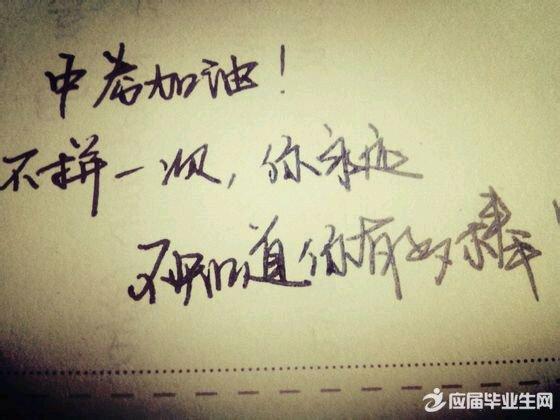 中考加油！
不拼一次，你永远
不知道你有多棒！
应届毕业生网